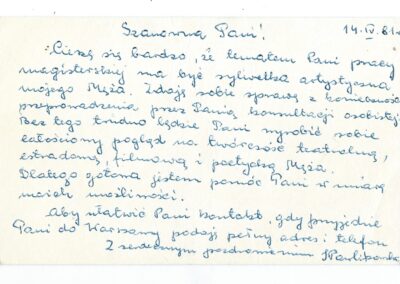 Szanowna Pani! 14.IV.81r
Cieszę się bardzo, że tematem Pani pracy
magisterskiej ma być sylwetka artystyczna
mojego Męża. Zdaję sobie sprawę z konieczności
przeprowadzenia przez Panią konsultacji osobistej.
Bez tego trudno będzie Pani wyrobić sobie
całościowy pogląd na twórczość teatralną,
estradową, filmową i poetycką Męża.
Dlatego gotowa jestem pomóc Pani w miarę
moich możliwości.
Aby ułatwić Pani kontakt, gdy przyjedzie
Pani do Warszawy podaję pełny adres i telefon
Z serdecznym pozdrowieniem